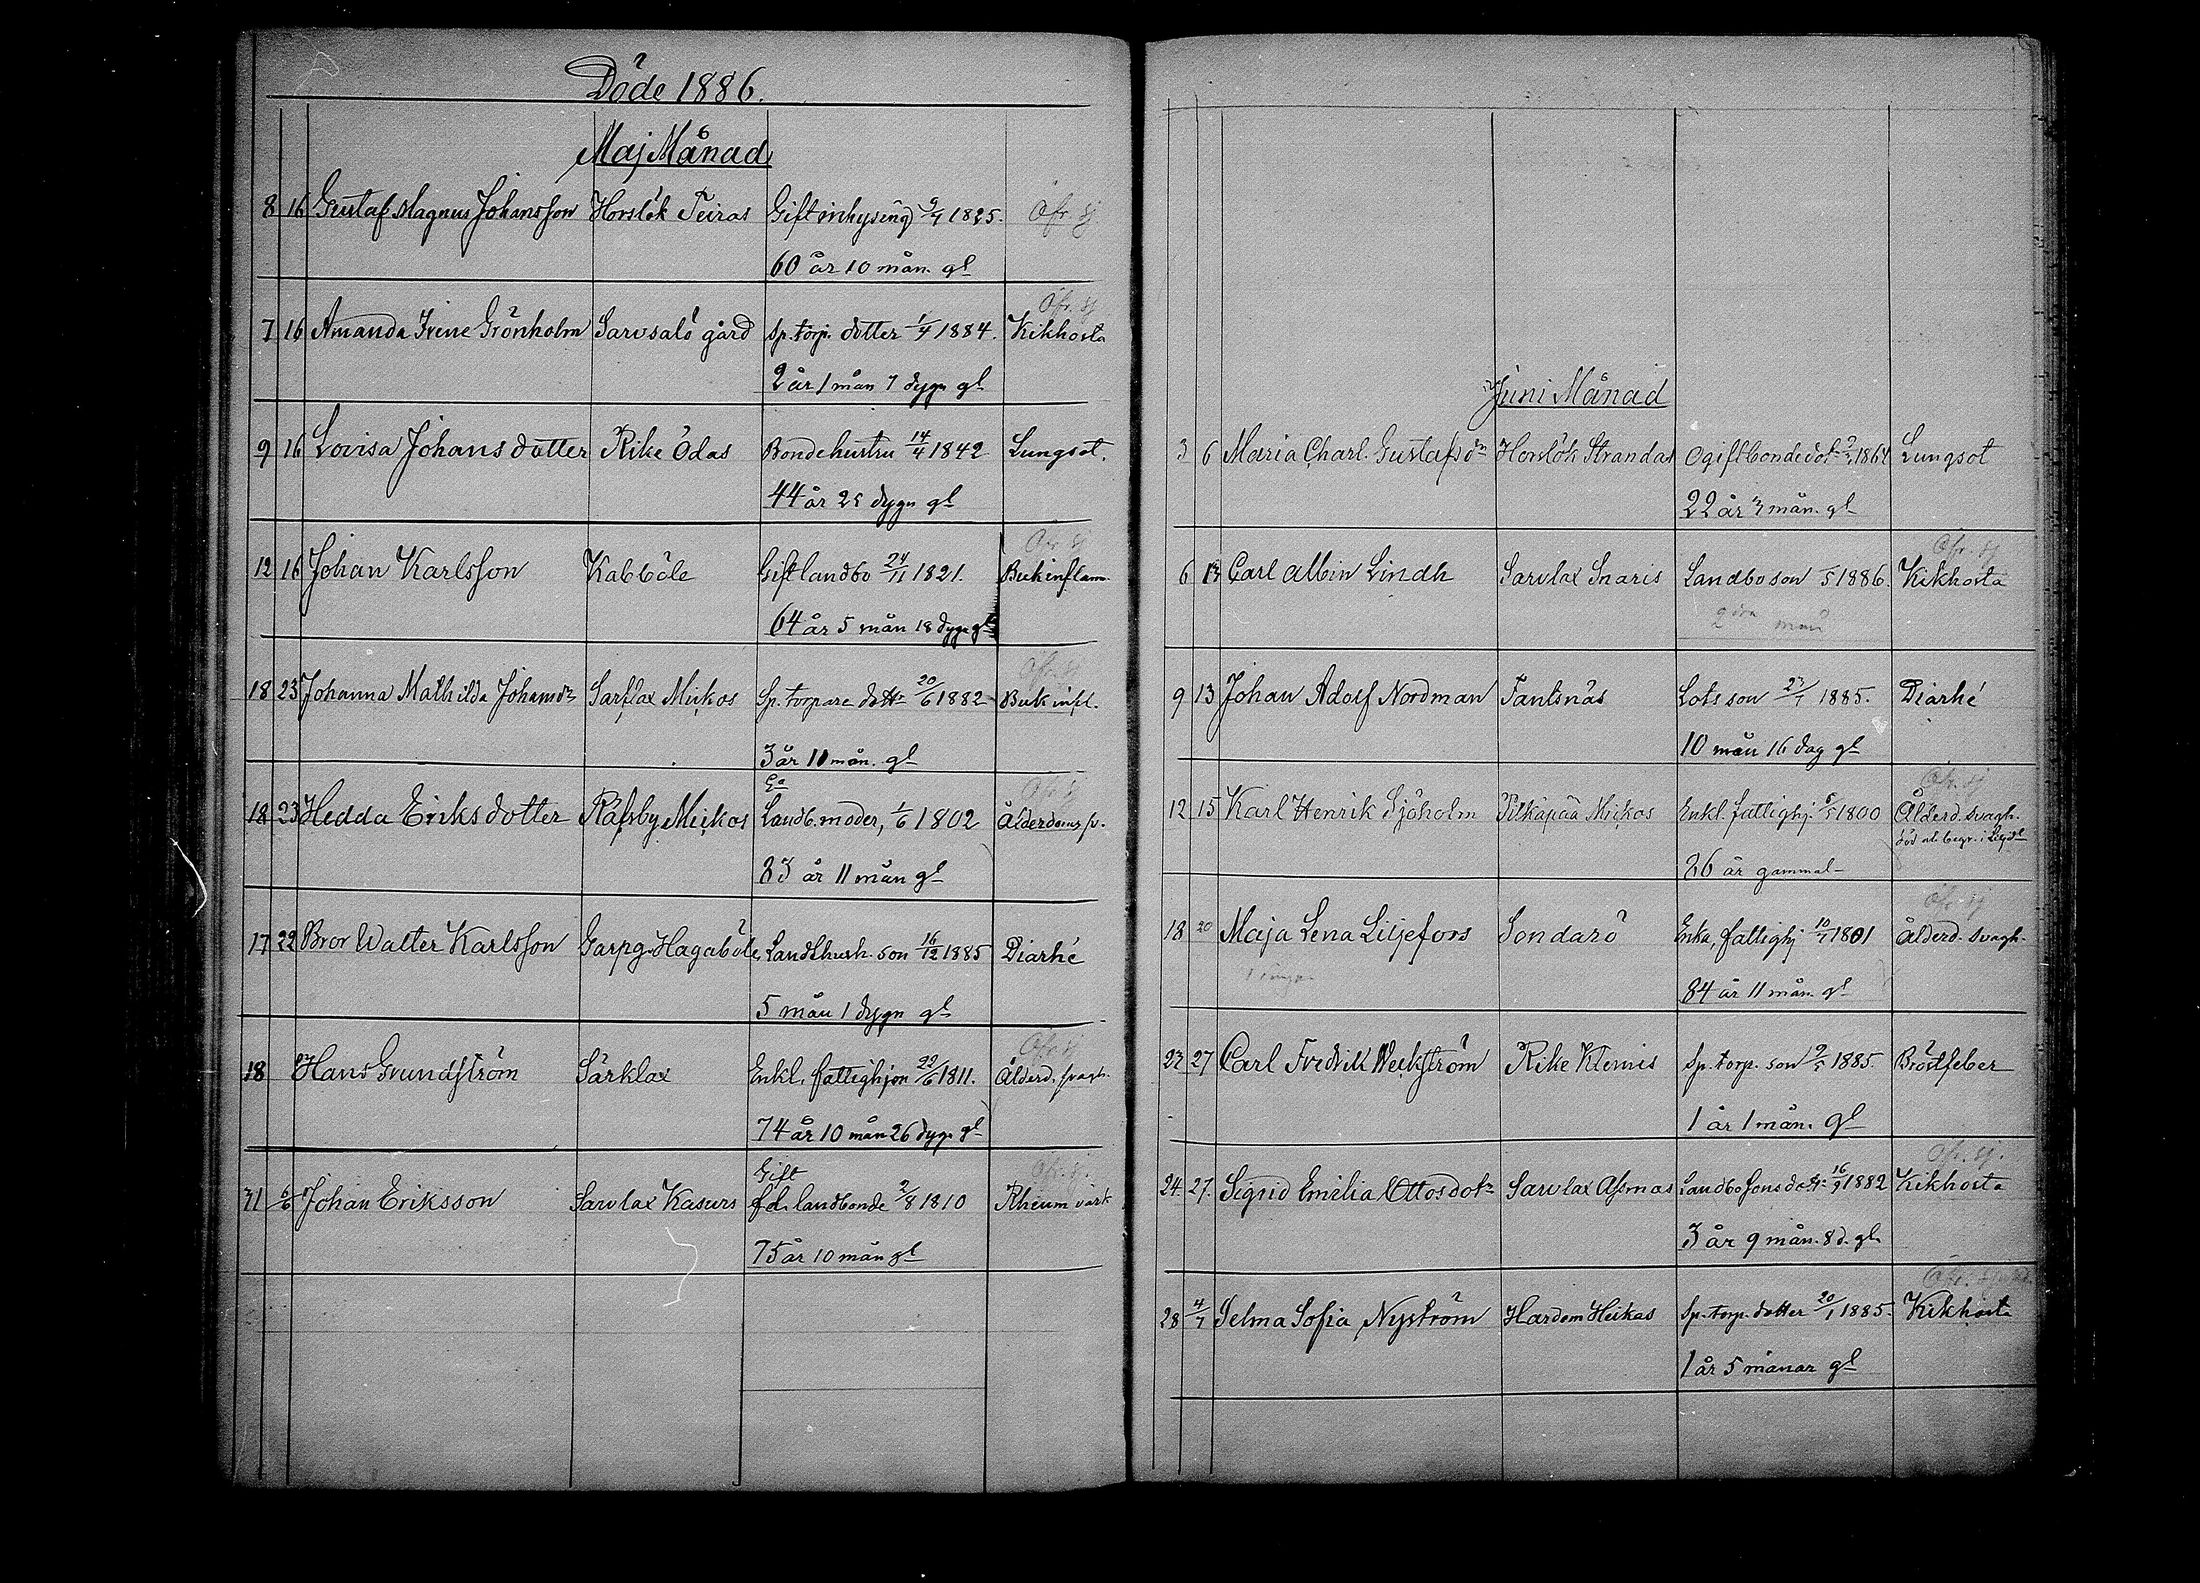 Döde 1886.
Maj Månad
8 16 Gustaf Magnus Johansson Horslök Teiras Gift inhysing 5/7 1825. Ofr. sj
60 år 10 mån. gl
Ofr. sj
7 16 Amanda Irene Grönholm Sarvsalö gård Sp. torp. dotter 1/4 1884. Kikhosta
2 år 1 mån 7 dygn gl
9 16 Lovisa Johansdotter Rike Ödas Bondehustru 14/4 1842 Lungsot.
44 år 25 dygn gl
Ofr. sj
12 16 Johan Karlsson Kabböle Gift landbo 24/11 1821. Bukinflam.
64 år 5 mån 18 dygn gl
Ofr. sj
18 23 Johanna Mathilda Johansdr Sarflax Mickos Sp. torpare dottr 20/6 1882 Buk infl.
3 år 11 mån. gl
Ea Ofr. sj
18 23 Hedda Eriksdotter Räfsby Mickos Landb. moder, 1/6 1802 Ålderdoms sv.
83 år 11 mån gl
17 22 Bror Walter Karlsson Garpg. Hagaböle Landb. hush. son 16/12 1885 Diarhé
5 mån 1 dygn gl
Ofr. sj
18 Hans Grundström Särklax Enkl. fattighjon 22/6 1811. Ålderd. svagh.
74 år 10 mån 26 dygn gl
Gift Ofr. sj.
31 6/6 Johan Eriksson Sarvlax Kasurs fd. landbonde 2/8 1810 Rheum värk
75 år 10 mån gl
Juni Månad
3 6 Maria Charl. Gustafsdr Horslök Strandas Ogift bondedotr 1864 Lungsot
22 år 3 mån. gl
Ofr. sj
6 13 Carl Albin Lindh Sarvlax Snaris Landbo son /5 1886. Kikhosta
mån
9 13 Johan Adolf Nordman Tantsnäs Lots son 23/7 1885. Diarhé
10 mån 16 dag gl
Ofr. sj
12 15 Karl Henrik Sjöholm Pitkäpää Mickos Enkl. fattighj. 5/5 1800 Ålderd. svagh.
död ok begr. i
86 år gammal
Ofr. sj
18 20 Maja Lena Liljefors Sondarö Enka, fattighj 10/7 1801 Ålderd. svagh.
84 år 11 mån. gl
23 27 Carl Fredrik Weckström Rike Klemis Sp. torp. son 9/5 1885. Bröstfeber
1 år 1 mån. gl
Ofr. sj.
24 27. Sigrid Emilia Ottosdotr Sarvlax Assmas Landbo sons dottr 16/9 1882 Kikhosta
3 år 9 mån. 8 d. gl.
Ofr.
28 4/7 Selma Sofia Nyström Hardom Heikas Sp. torp. dotter 20/1 1885. Kikhosta
1 år 5 månar gl